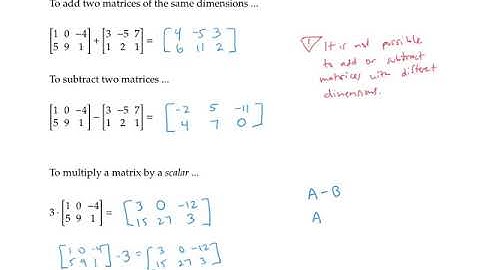 To add two matrices of the same dimensions ...
[1 0 −4
5 9 1] + [3 −5 7
1 2 1] = [4 -5 3
6 11 2]
! It is not possible
to add or subtract
matrices with different
dimensions.
To subtract two matrices ...
[1 0 −4
5 9 1] − [3 −5 7
1 2 1] = [-2 5 -11
4 7 0]
To multiply a matrix by a scalar ...
3 · [1 0 −4
5 9 1] = [3 0 -12
15 27 3]
A-B
A
[1 0 -4
5 9 1] · 3 = [3 0 -12
15 27 3]